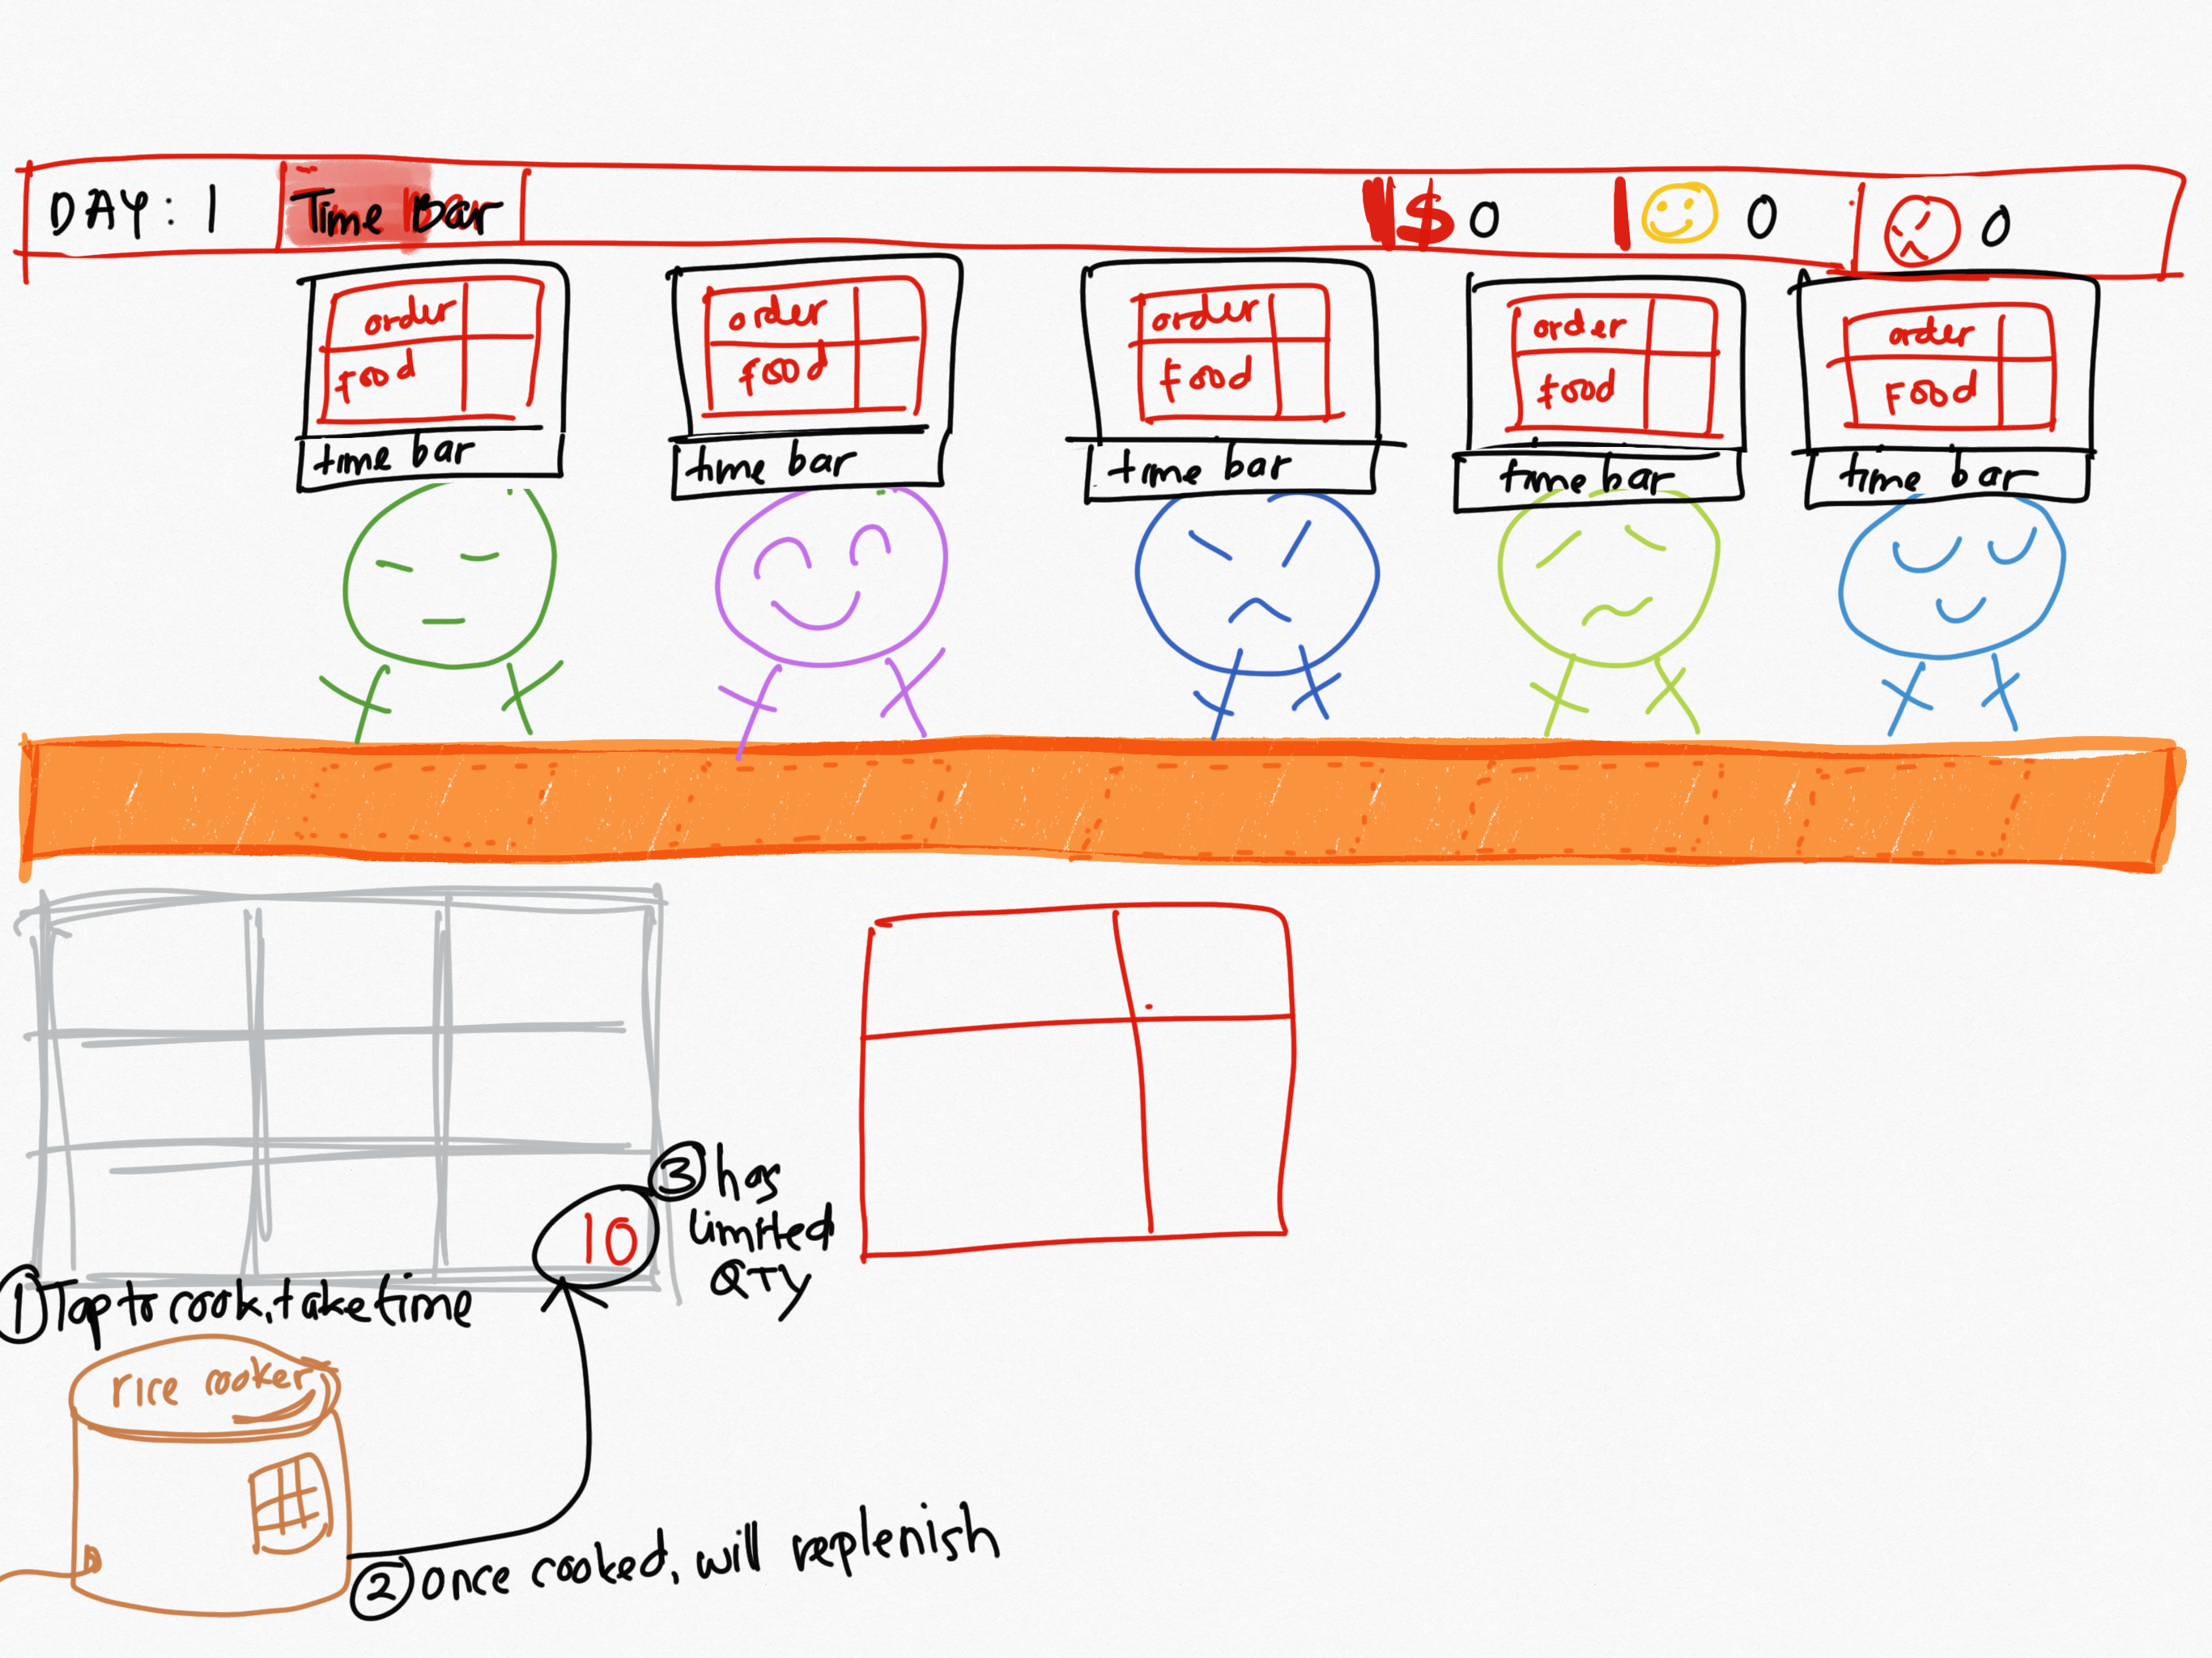 DAY: 1
Time Bar
$ 0
0
0
order
food
time bar
order
food
time bar
order
Food
time bar
order
food
time bar
order
Food
time bar
10
③ has
limited
QTY
① Tap to cook, take time
rice cooker
② once cooked, will replenish